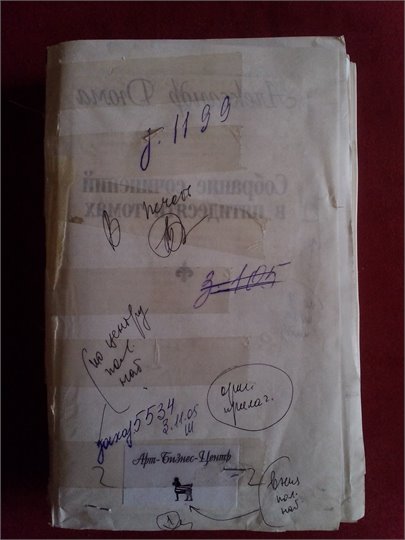 Александр Дюма
з. 1199
Собрание сочинений
в пятидесяти томах
В печать
з-105
по центру
пол.
наб
заказ 5534
3.11.05
Арт-Бизнес-Центр
вниз
пол.
наб.